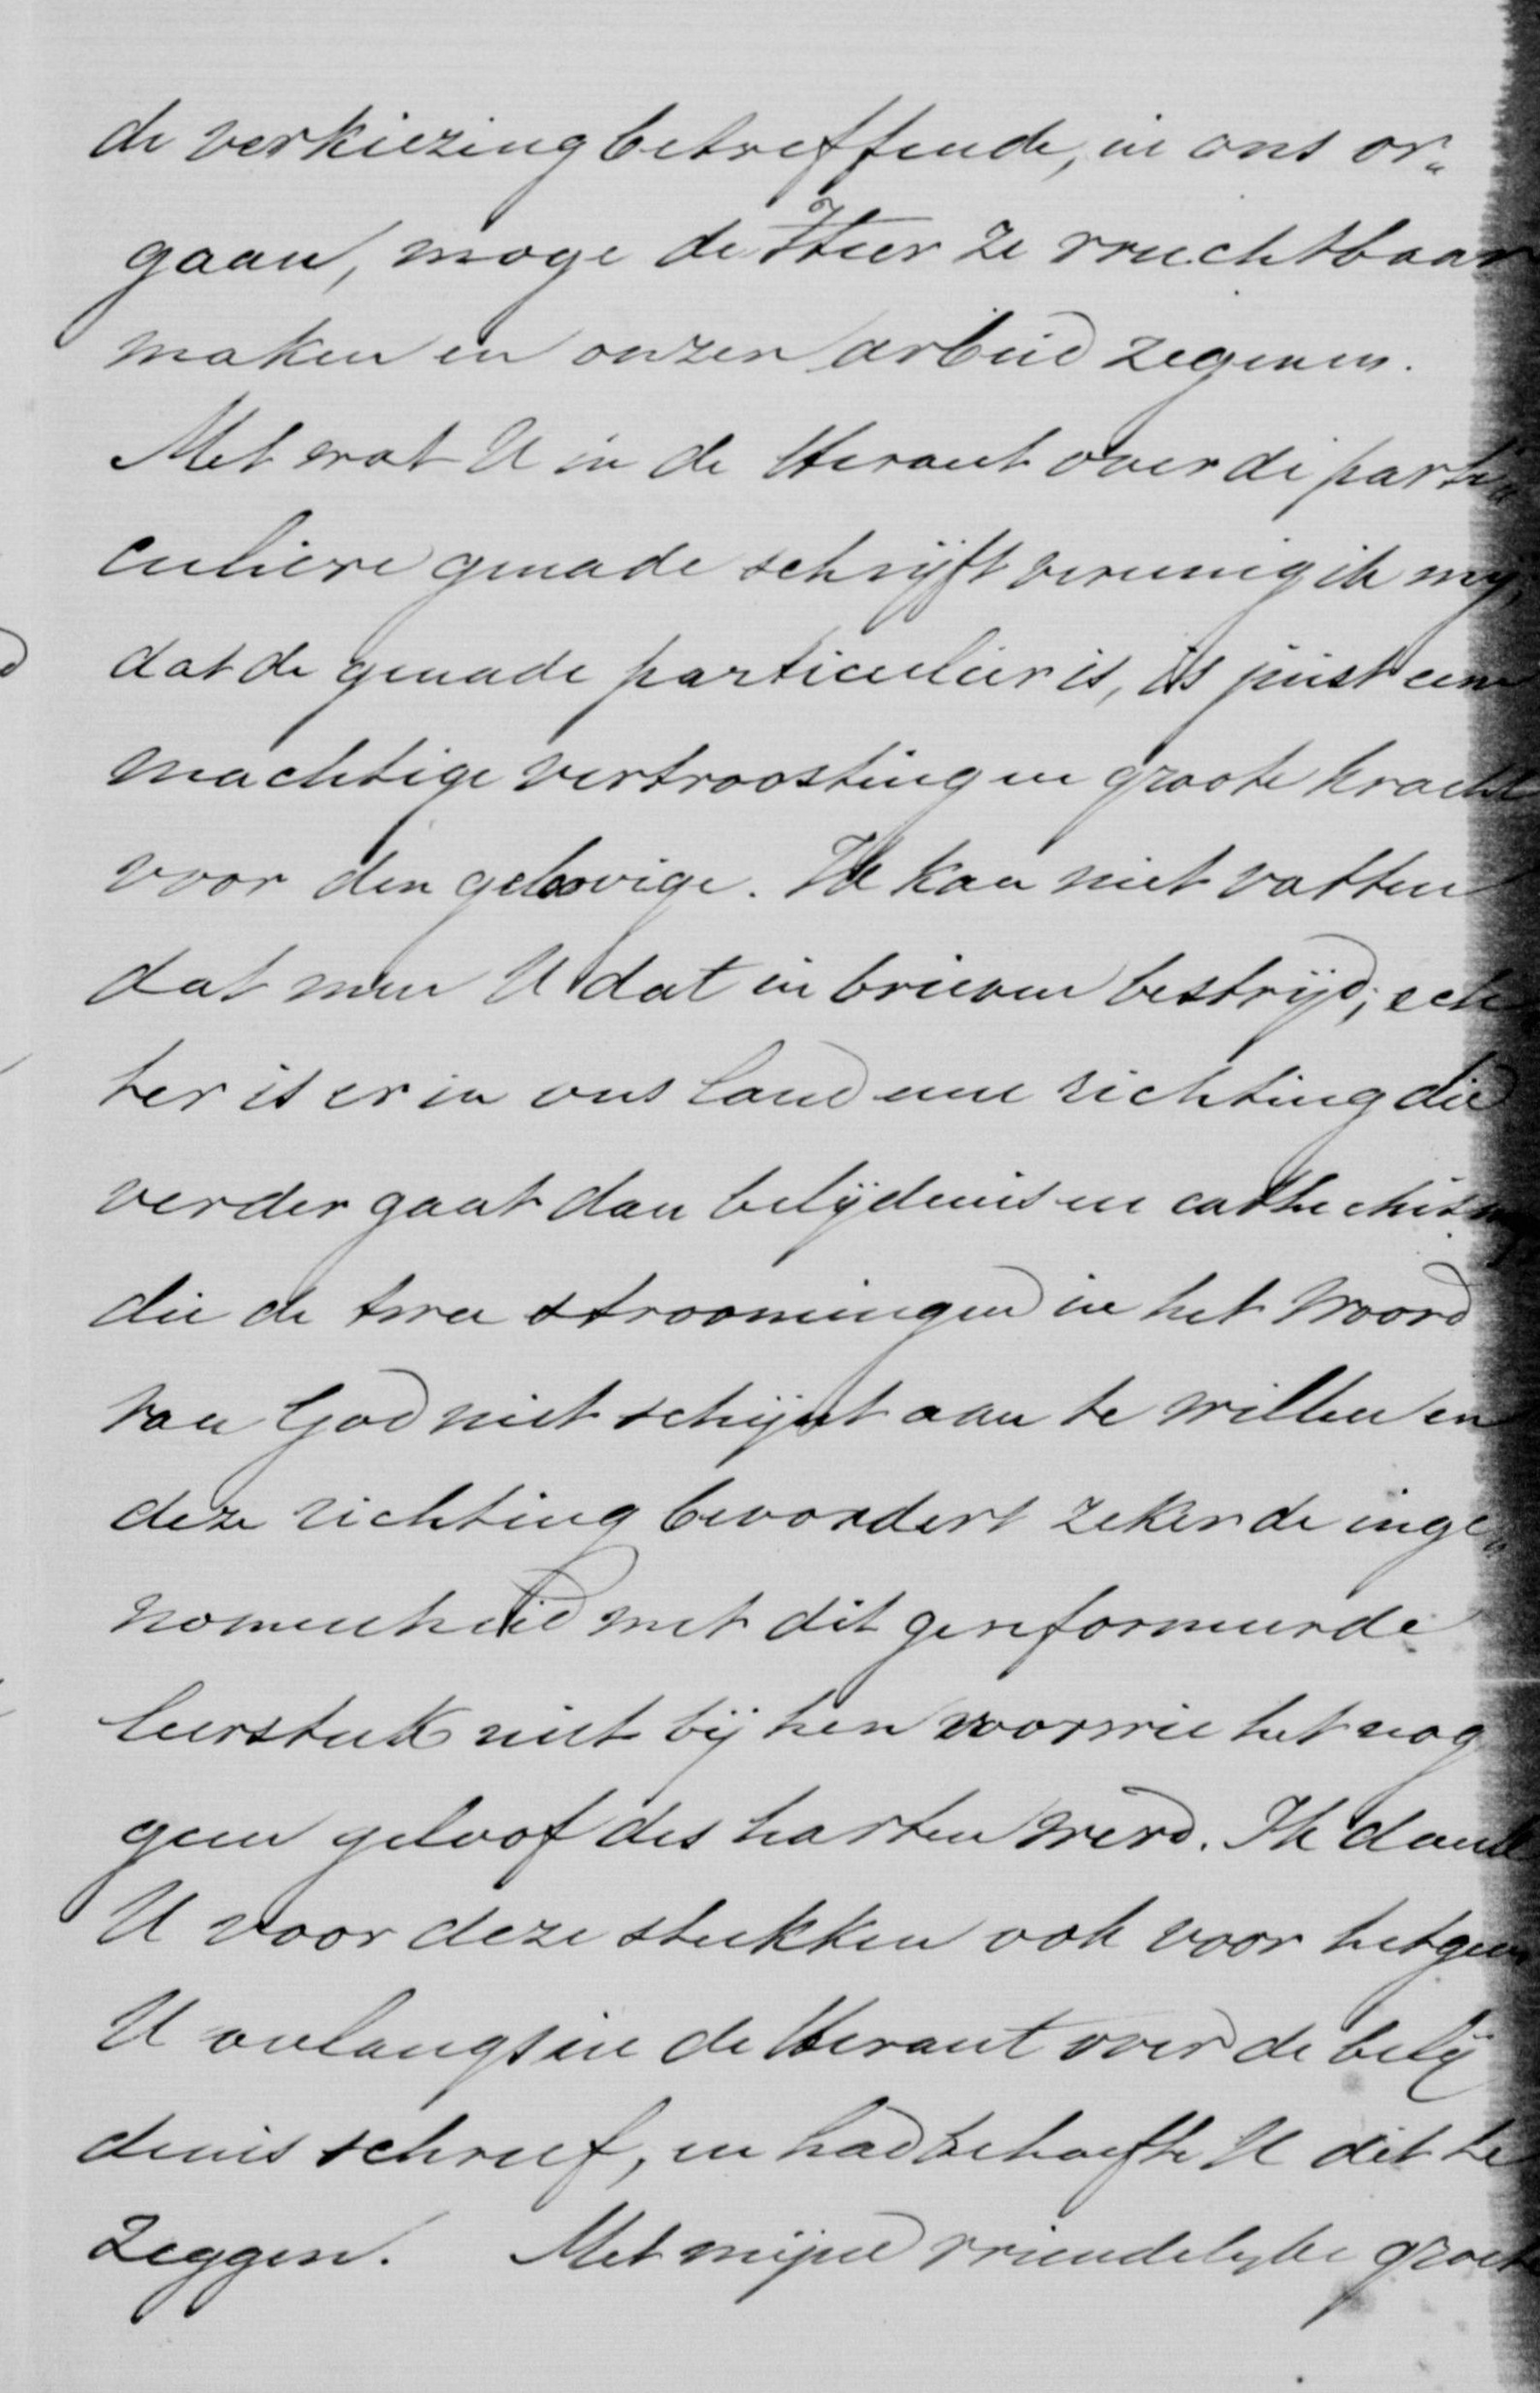 de verkiezing betreffende, in ons or„
gaan, moge de Heer ze vruchtbaar
maken en onzen arbeid zegenen.
Met wat U in de Heraut over de parti„
culiere genade schrijft vereenig ik mij,
dat de genade particulier is, is juist eene
machtige vertroosting en groote kracht
voor den geloovige. Ik kan niet vatten
dat men U dat in brieven bestrijd; ech
ter is er in ons land eene richting die
verder gaat dan belijdenis en cathechism
die de twee stroomingen in het Woord
van God niet schijnt aan te willen en
deze richting bevordert zeker de inge„
nomenheid met dit gereformeerde
leerstuk niet bij hen voor wie het nog
geen geloof des harten werd. Ik dank
U voor deze stukken ook voor hetgeen
U onlangs in de Heraut over de belij
denis schreef, en had behoefte U dit te
zeggen. Met mijne vriendelijke groete